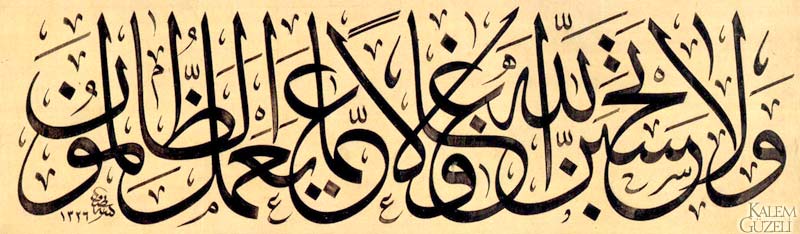 وَلَا تَحْسَبَنَّ اللّٰهَ غَافِلًا عَمَّا يَعْمَلُ الظَّالِمُونَ
١٣٢٦
KALEM
GÜZELİ